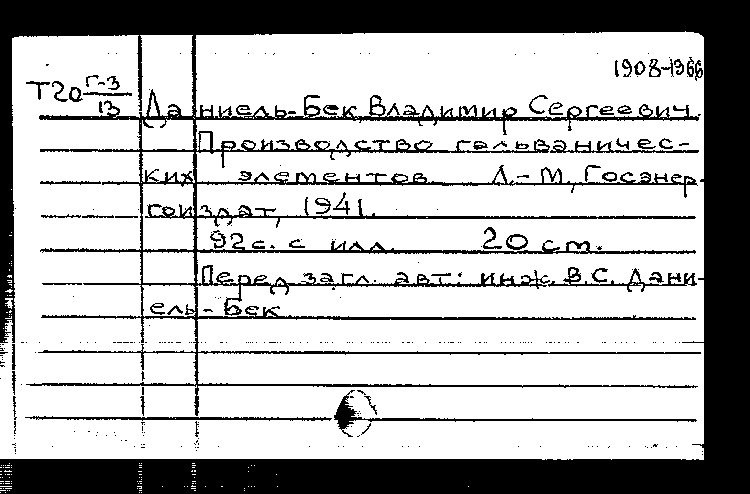 1908-1966
Т20 Г-3/13 Даниель-Бек, Владимир Сергеевич.
Производство гальваничес-
ких элементов. Л.-М., Госэнер-
гоиздат, 1941.
92 с. с илл. 20 см.
Перед загл. авт: инж. В.С. Дани-
ель-Бек